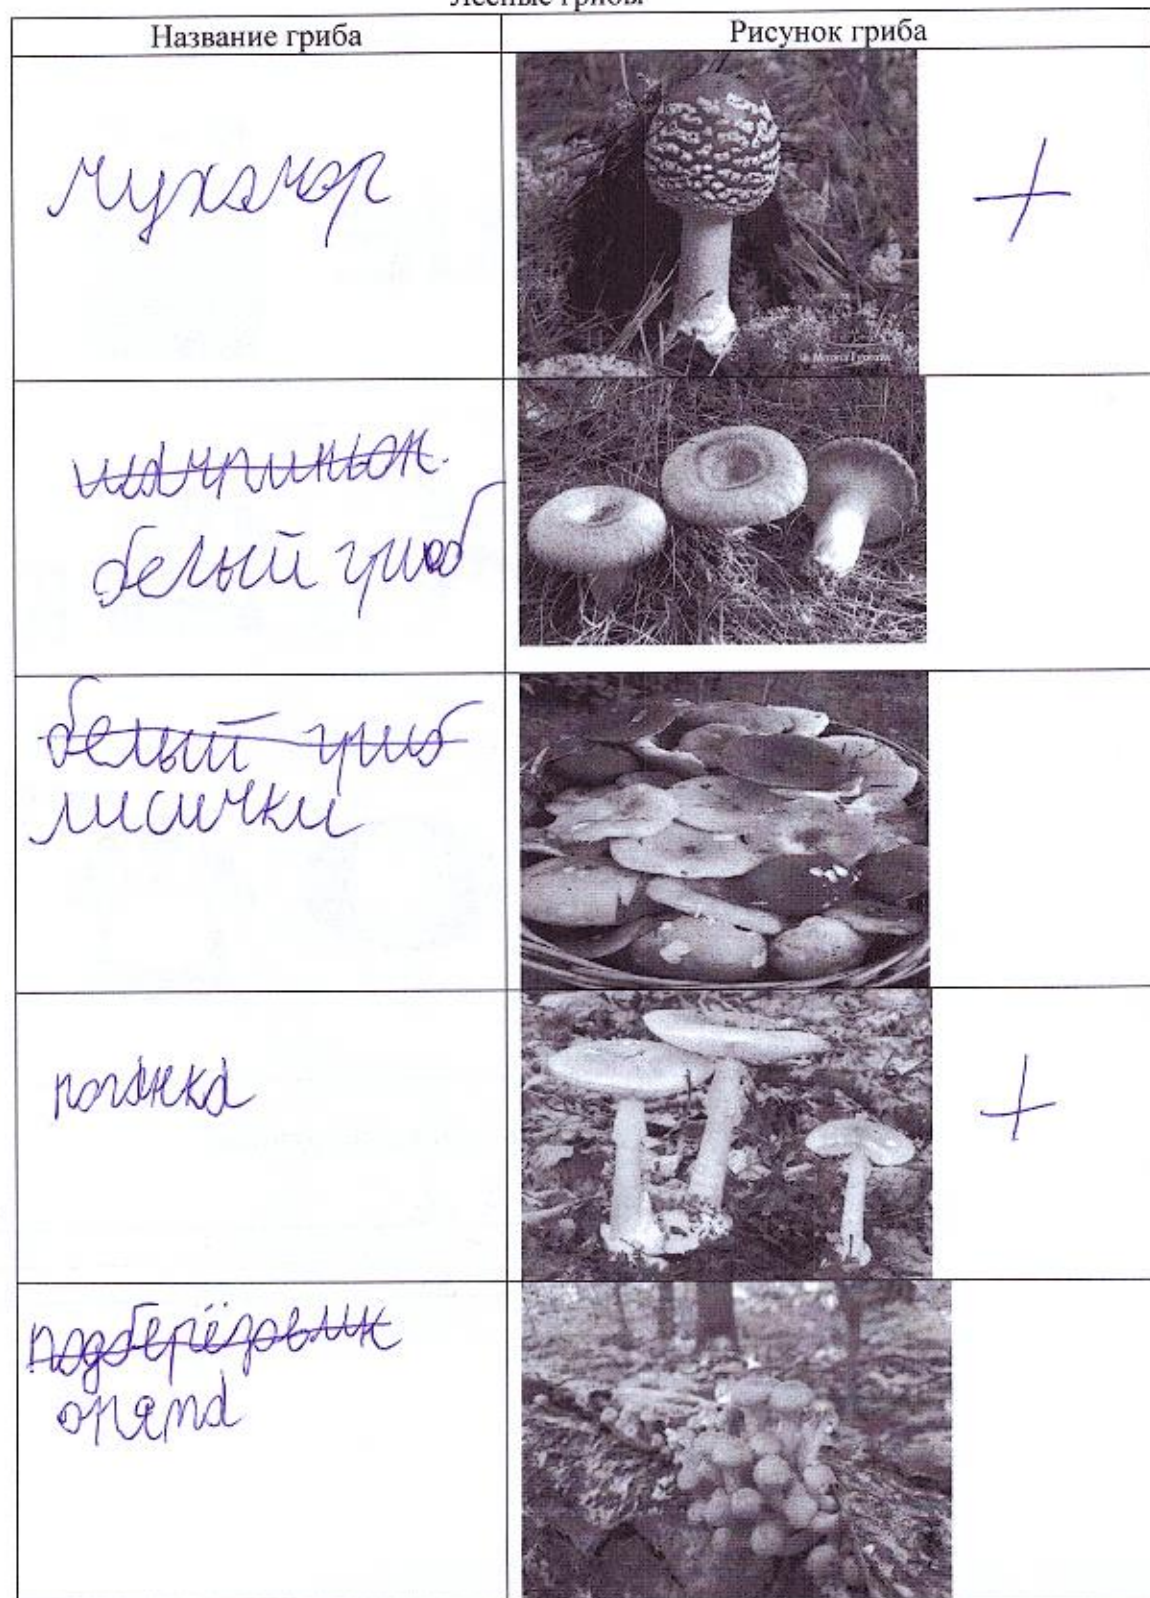 Лесные грибы
Название гриба
Рисунок гриба
мухамор
+
шампиньон.
белый гриб
белый гриб
лисички
поганка
+
подберёзовик
опята